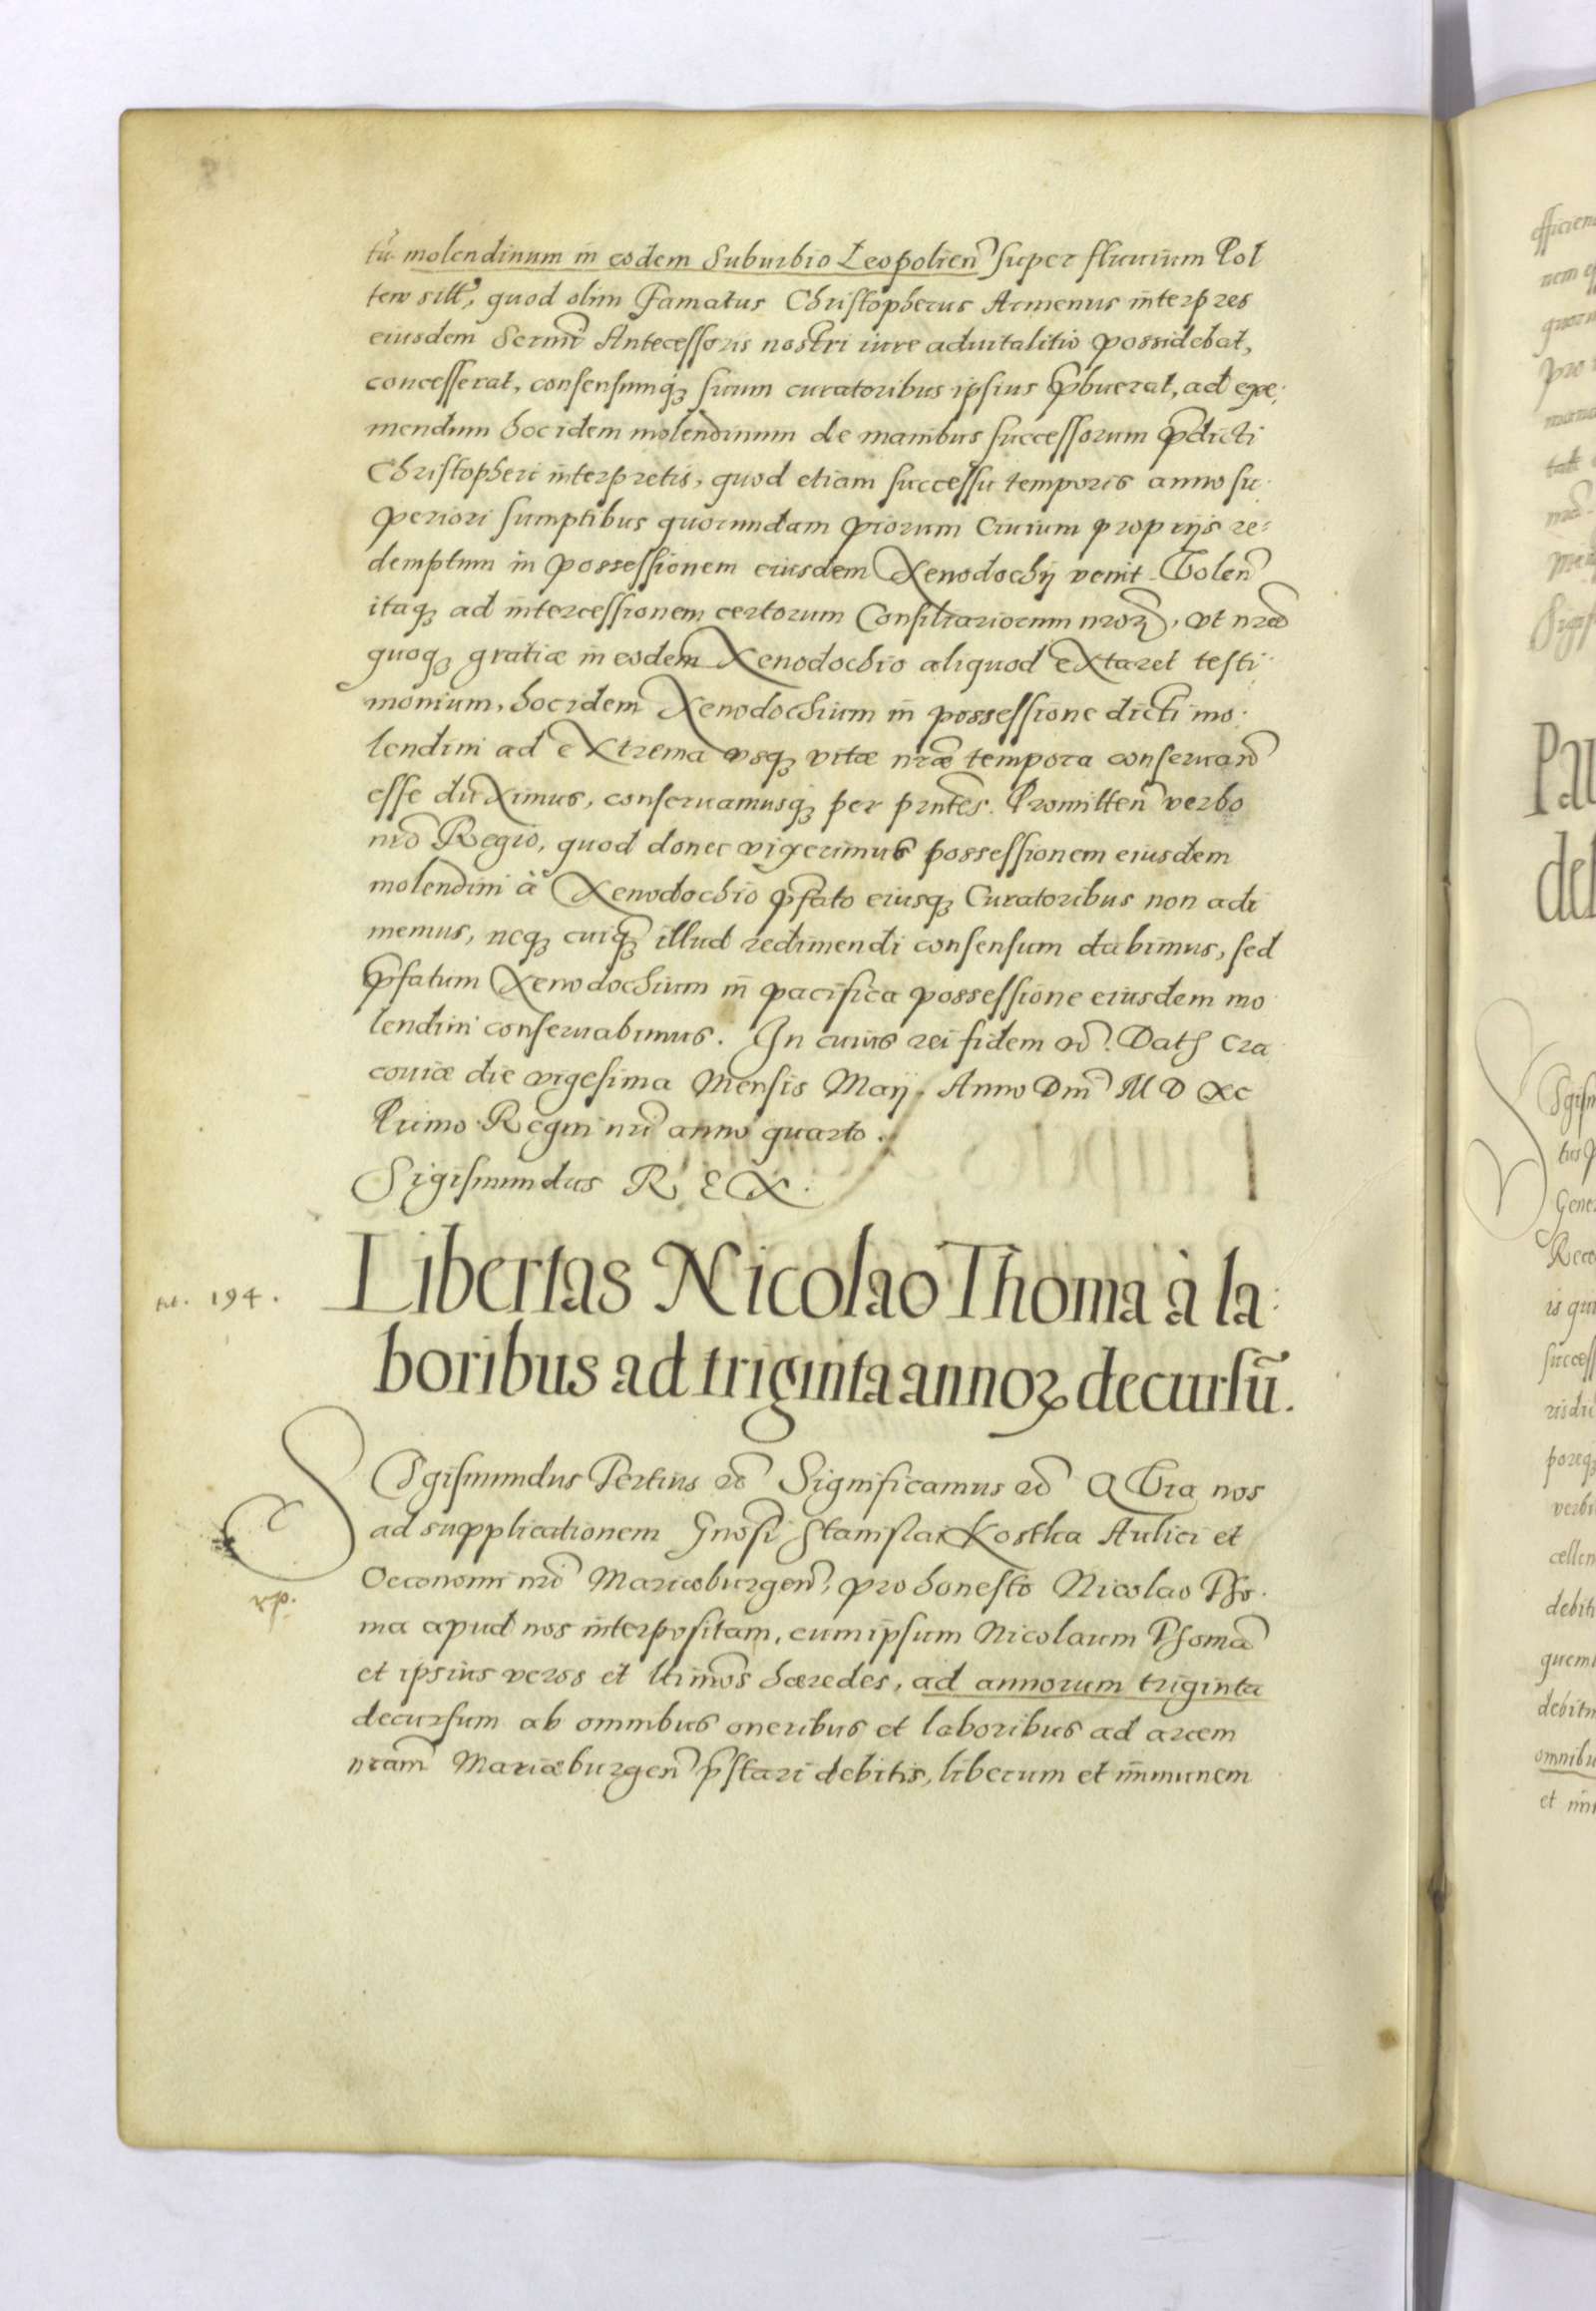 tũ molendinum in eodem Suburbio Leopolien̄ super fluuium Pol
tew sitt̄, quod olim Famatus Christopherus Armenus interpres
eiusdem Sermī Antecessoris nostri iure aduitalitio possidebat,
concesserat, consensumq̃ suum curatoribus ipsius p̄buerat, ad exi:
mendum hoc idem molendinum de manibus successorum p̄dicti
Christopheri interpretis, quod etiam successu temporis anno su:
periori sumptibus quorundam piorum Ciuium proprijs re:
demptum in possessionem eiusdem Xenodochij venit. Volen̄
itaq̃ ad intercessionem certorum Consiliariorum nr̄oꝝ, vt nr̄æ
quoq̃ gratiæ in eodem Xenodochio aliquod extaret testi:
monium, hoc idem Xenodochium in possessione dicti mo:
lendini ad extrema vsq̃ vitæ nr̄æ tempora conseruan̄
esse duximus, conseruamusq̃ per pr̄ntes. Promitten̄ verbo
nr̄o Regio, quod donec vixerimus possessionem eiusdem
molendini à Xenodochio p̄fato eiusq̃ Curatoribus non adi
memus, neq̃ cuiq̃ illud redimendi consensum dabimus, sed
p̄fatum Xenodochium in pacifica possessione eiusdem mo
lendini conseruabimus. In cuius rei fidem etc̄. Datꝭ Cra
couiæ die vigesima Mensis Maij. Anno Dnī M D XC
Primo Regni nrī anno quarto.
Sigismundus R E X.
194.
Libertas Nicolao Thoma à la:
boribus ad triginta annoꝝ decursũ.
Sigismundus Tertius etc̄ Significamus etc̄ Q Via nos
ad supplicationem Gnōsi Stanislai Kostka Aulici et
Oeconomi nrī Mariæburgen̄, pro honesto Nicolao Tho:
ma apud nos interpositam, cum ipsum Nicolaum Thomā
et ipsius veros et lt̄imos hæredes, ad annorum triginta
decursum ab omnibus oneribus et laboribus ad arcem
nr̄am Mariæburgen̄ p̄stari debitis, liberum et immunem